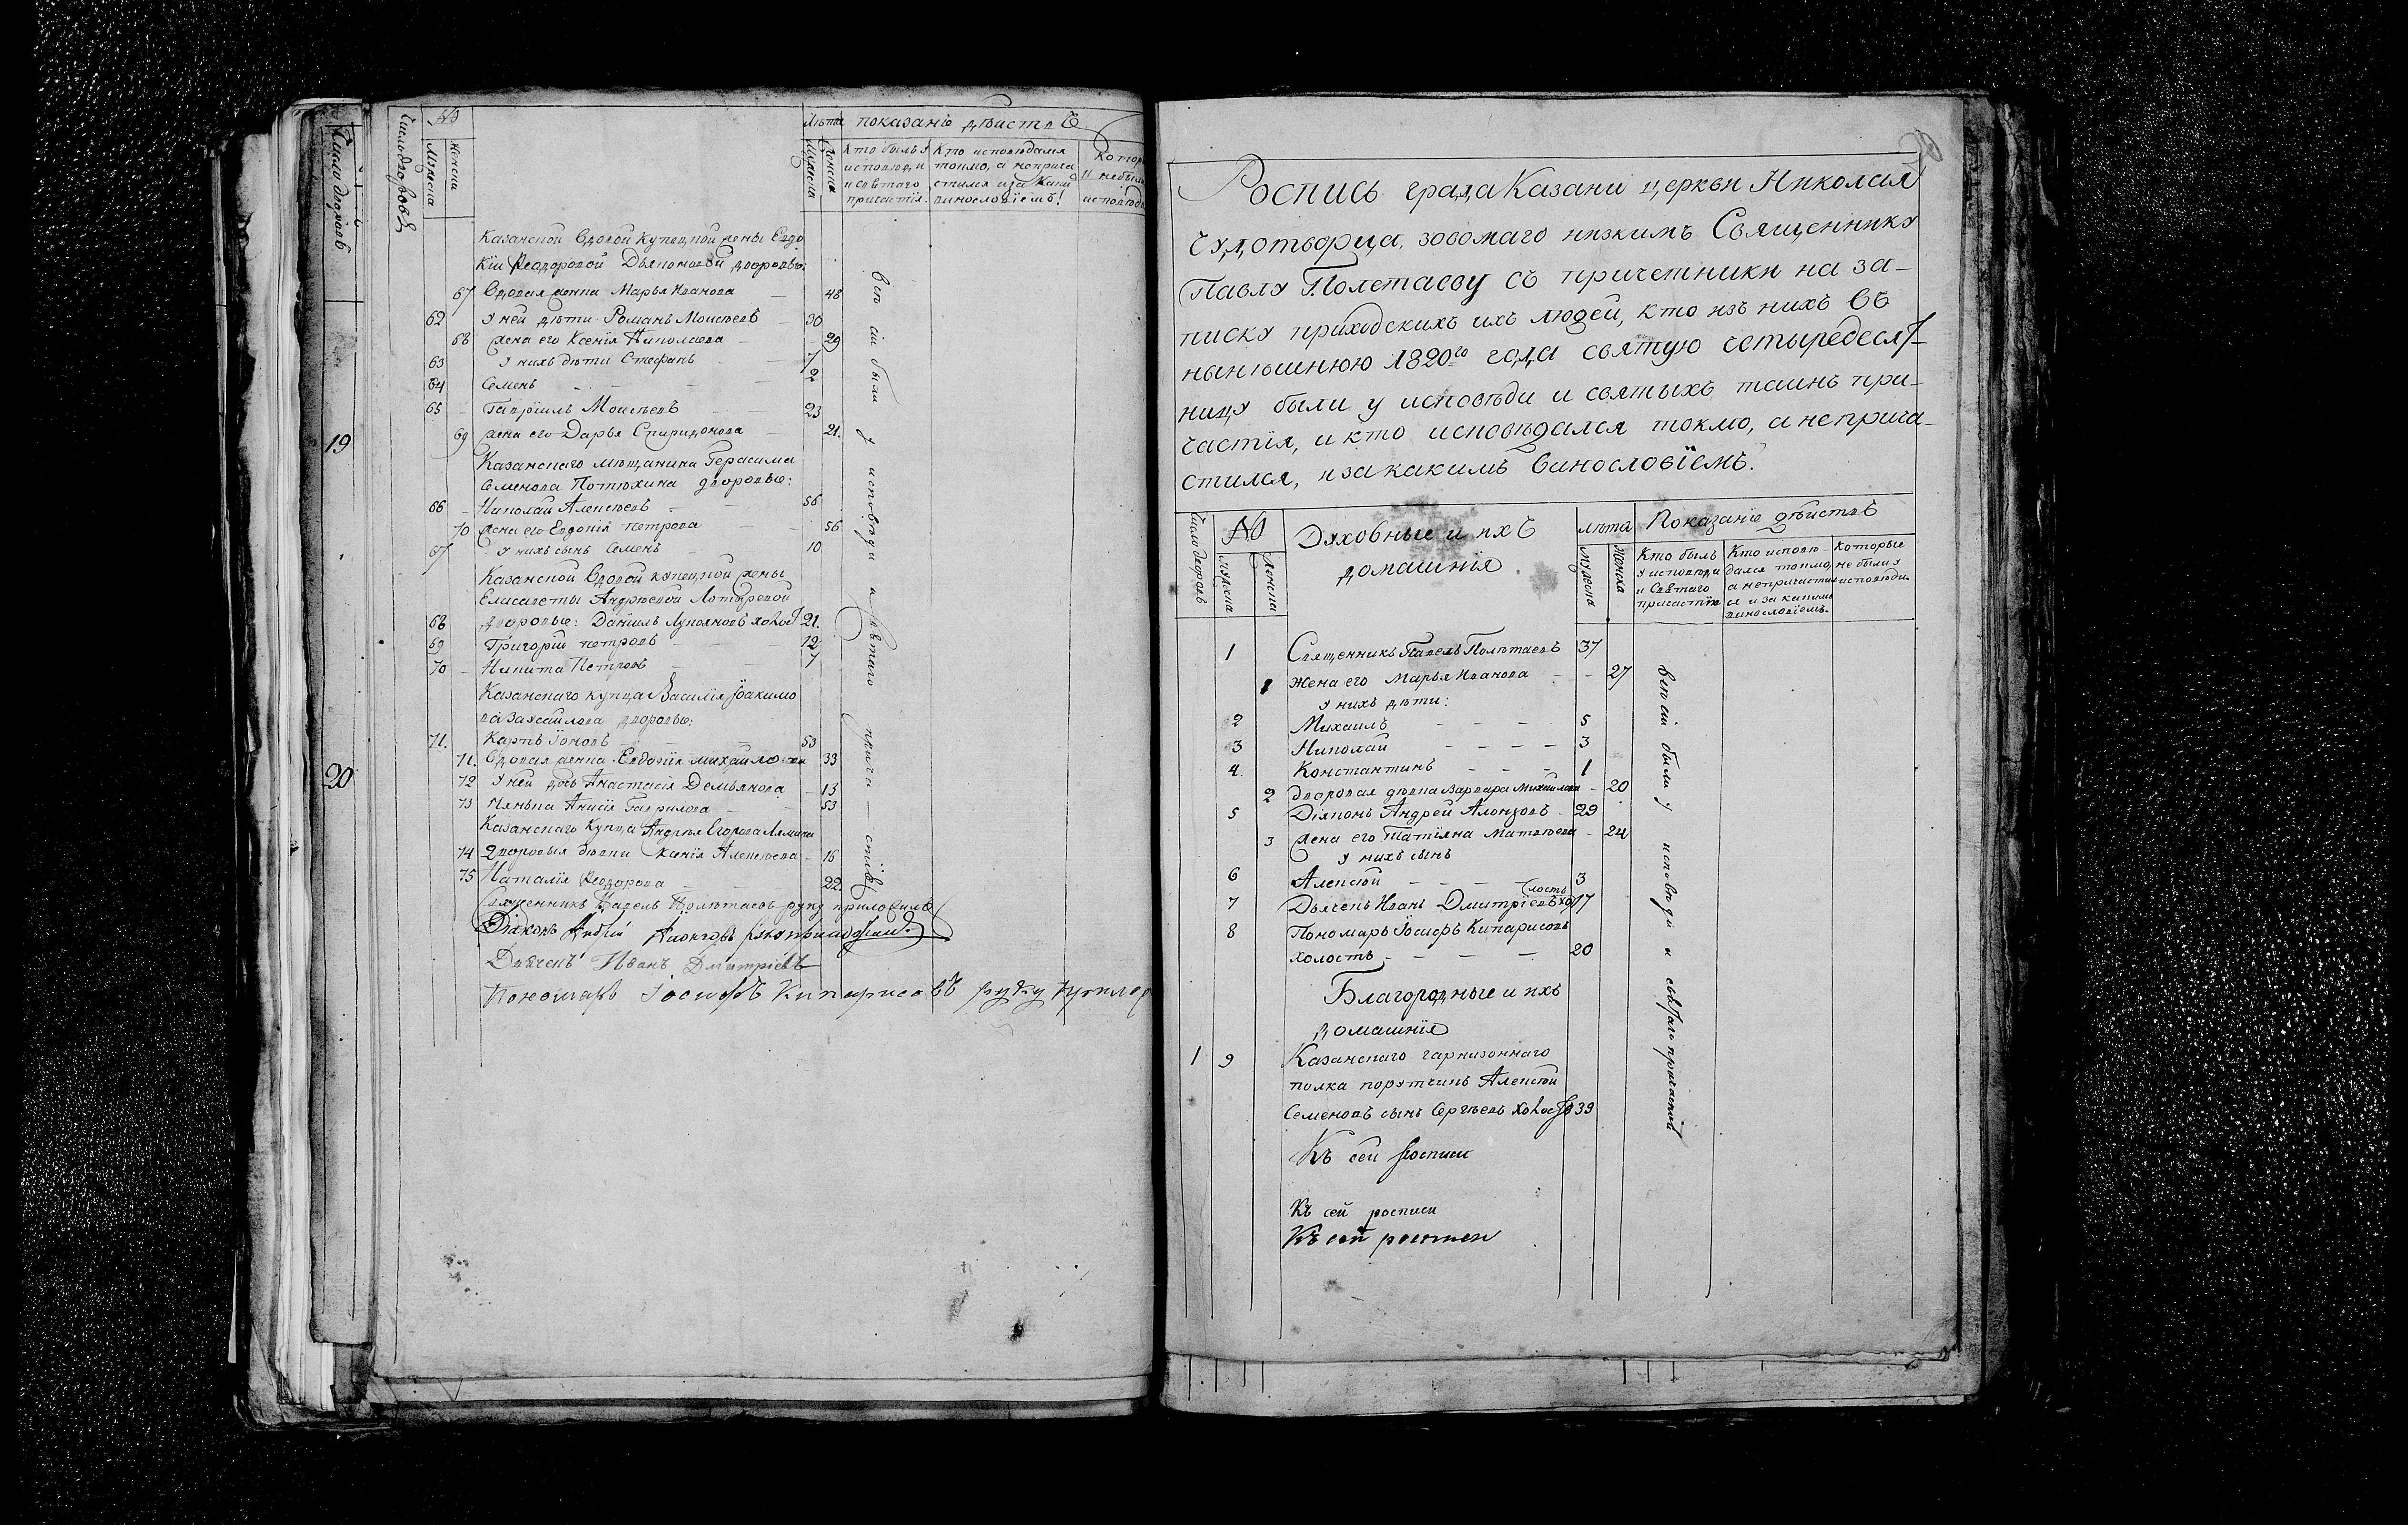 Число дворовъ
19
20
Число дворовъ
№
Мужеска
Женска
Лѣта
показаніе дѣиствъ
Мужеска
Женска
Кто былъ у исповѣди и святаго причастія.
Кто исповѣдался токмо, а неприча стился и за какимъ винословіемъ!
Котор и небыли исповѣди
Казанской вдовой купецкой жены Евдо
кіи Ѳеодоровой Дьяконовой дворовые:
67 Вдовая женка Марья Иванова 48
62 У ней дѣти Романъ Моисѣевъ 30
68 жена его Ксенія Николаева 29
63 У нихъ дѣти Стефанъ 7
64 Семенъ 2
65 Гавріилъ Моисѣевъ 23
69 жена его Дарья Спиридонова 21.
Казанскаго мѣщанина Герасима
Семенова Потюхина дворовые:
66 Николай Алексѣевъ 56
70 жена его Евдокія петрова 56
67 У нихъ сынъ Семенъ 10
Казанской вдовой купецкой жены
Елисаветы Андрѣевой
дворовые: Даніилъ холостъ 21.
68
69 Григорій петровъ 12
70 Никита Петровъ 7
Казанскаго купца Василія Іоакимо
ва дворовые:
71. Карпъ Іоновъ 53
71. Вдовая женка Евдокія михайлова 33
72 У ней дочь Анастасія Демьянова 13
73 Нянька Анисія Гаврилова 53
Казанскаго купца Андрея Егорова
74 Дворовыя дѣвки Ксенія Алексѣева 16
75 Наталія Ѳеодорова 22.
Священникъ Павелъ Полѣтаевъ руку приложилъ
Діаконъ Андрей
Дьячекъ Иванъ Дмитріевъ
Пономарь Іосифъ Кипарисовъ руку прилож
всѣ сіи были у исповѣди и святаго прича-стія
Роспись града Казани церкви Николая
Чудотворца, зовомаго низкимъ Священнику
Павлу Полетаеву съ причетники на за-
писку приходскихъ ихъ людей, кто изъ нихъ въ
нынѣшнюю 1820го года святую четыредесят-
ницу были у исповѣди и святыхъ таинъ при-
частія, и кто исповѣдался токмо, а неприча-
стился, и за какимъ винословіемъ.
Число дворовъ
№
Мужеска
Женска
Духовные и ихъ
домашнія
лѣта
Мужеска
Женска
Показаніе дѣиствъ
Кто былъ у исповѣди и Святаго причастія
Кто исповѣ-дался токмо, а непричастил ся и за какимъ винословіемъ.
которые не были у исповѣди.
1 Священникъ Павелъ Полѣтаевъ 37
1 Жена его Марья Иванова 27
У нихъ дѣти:
2 Михаилъ 5
3 Николай 3
4. Константинъ 1
2 дворовая дѣвка Варвара Михайлова 20
5 Діяконъ Андрей 29
3 жена его Татіяна Матвѣева 24
У нихъ сынъ
6 Алексѣй 3
7 Дьячекъ Иванъ Дмитріевъ холостъ 17
8 Пономарь Іосифъ Кипарисовъ
холостъ 20
Благородные и ихъ
домашнія
1 9 Казанскаго гарнизоннаго
полка порутчикъ Алексѣй
Семеновъ сынъ Сергѣевъ холостъ 39
всѣ сіи были у исповѣди и святаго причастія
Къ сей росписи
Къ сей росписи
Къ сей росписи